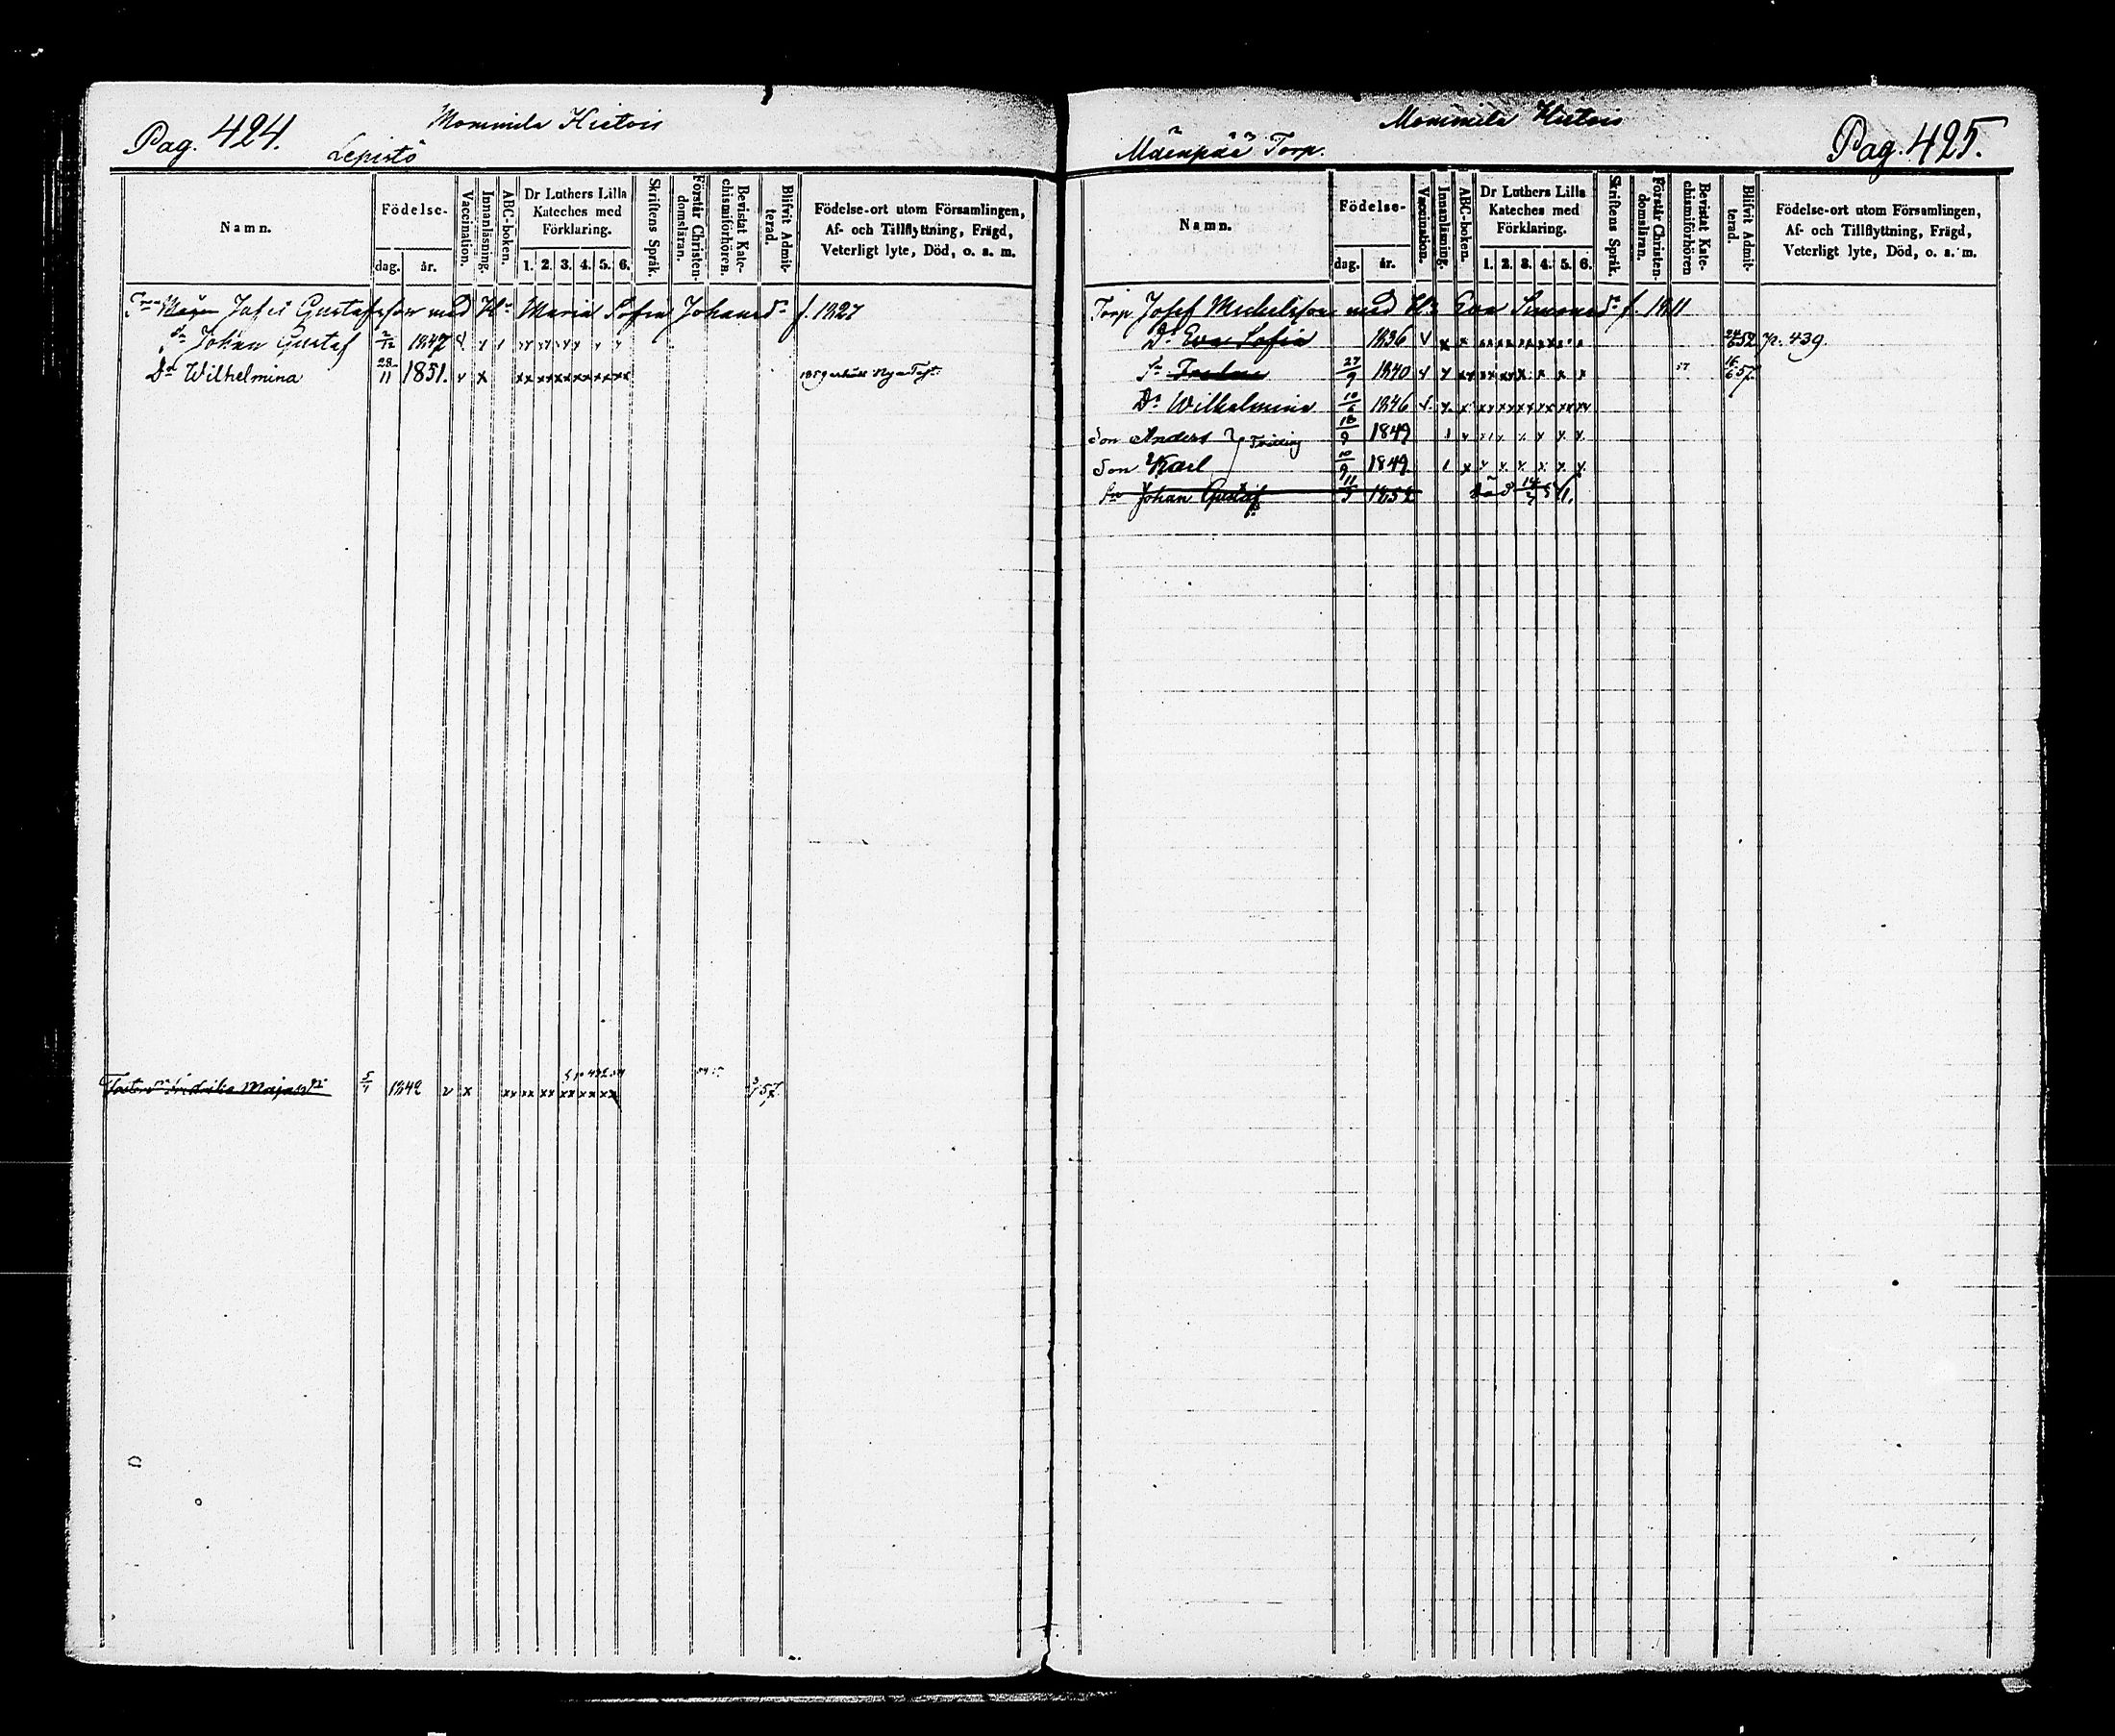 Pag. 424.
Mommila Hietois
Lepistö
Namn.
Födelse-
dag.
år.
Vaccination.
Innanläsning.
ABC-boken.
Dr Luthers Lilla Kateches med Förklaring.
1. 2. 3. 4. 5. 6.
Skriftens Språk.
Förstår Christendomsläran.
Bevistat Katechismiförhören.
Blifvit Admitterad.
Födelse-ort utom Församlingen,
Af- och Tillflyttning, Frägd,
Veterligt lyte, Död, o. s. m.
Josef Gustafsson med Hu Maria Sofia Johansdr f. 1827
Sn Johan Gustaf 2/12 1847
Dr Wilhelmina 28/11 1851.
1859
5/1 1842 v x
57.
Pag. 425.
Mommila Hietois
Mäenpää Torp.
Namn.
Födelse-
dag.
år.
Vaccination.
Innanläsning.
ABC-boken.
Dr Luthers Lilla Kateches med Förklaring.
1. 2. 3. 4. 5. 6.
Skriftens Språk.
Förstår Christendomsläran.
Bevistat Katechismiförhören
Blifvit Admitterad.
Födelse-ort utom Församlingen,
Af- och Tillflyttning, Frägd,
Veterligt lyte, Död, o. s. m.
Torp. Josef Michelsson med Hu Eva Simonsdr f. 1811
Dr Eva Sofia 1836 52 p. 439
27/9 1840 16/6 57.
Dr Wilhelmina 10/6 1846
Son Anders 1849
Son Karl 1849
Sn Johan Gustaf 11/5 1852 Död